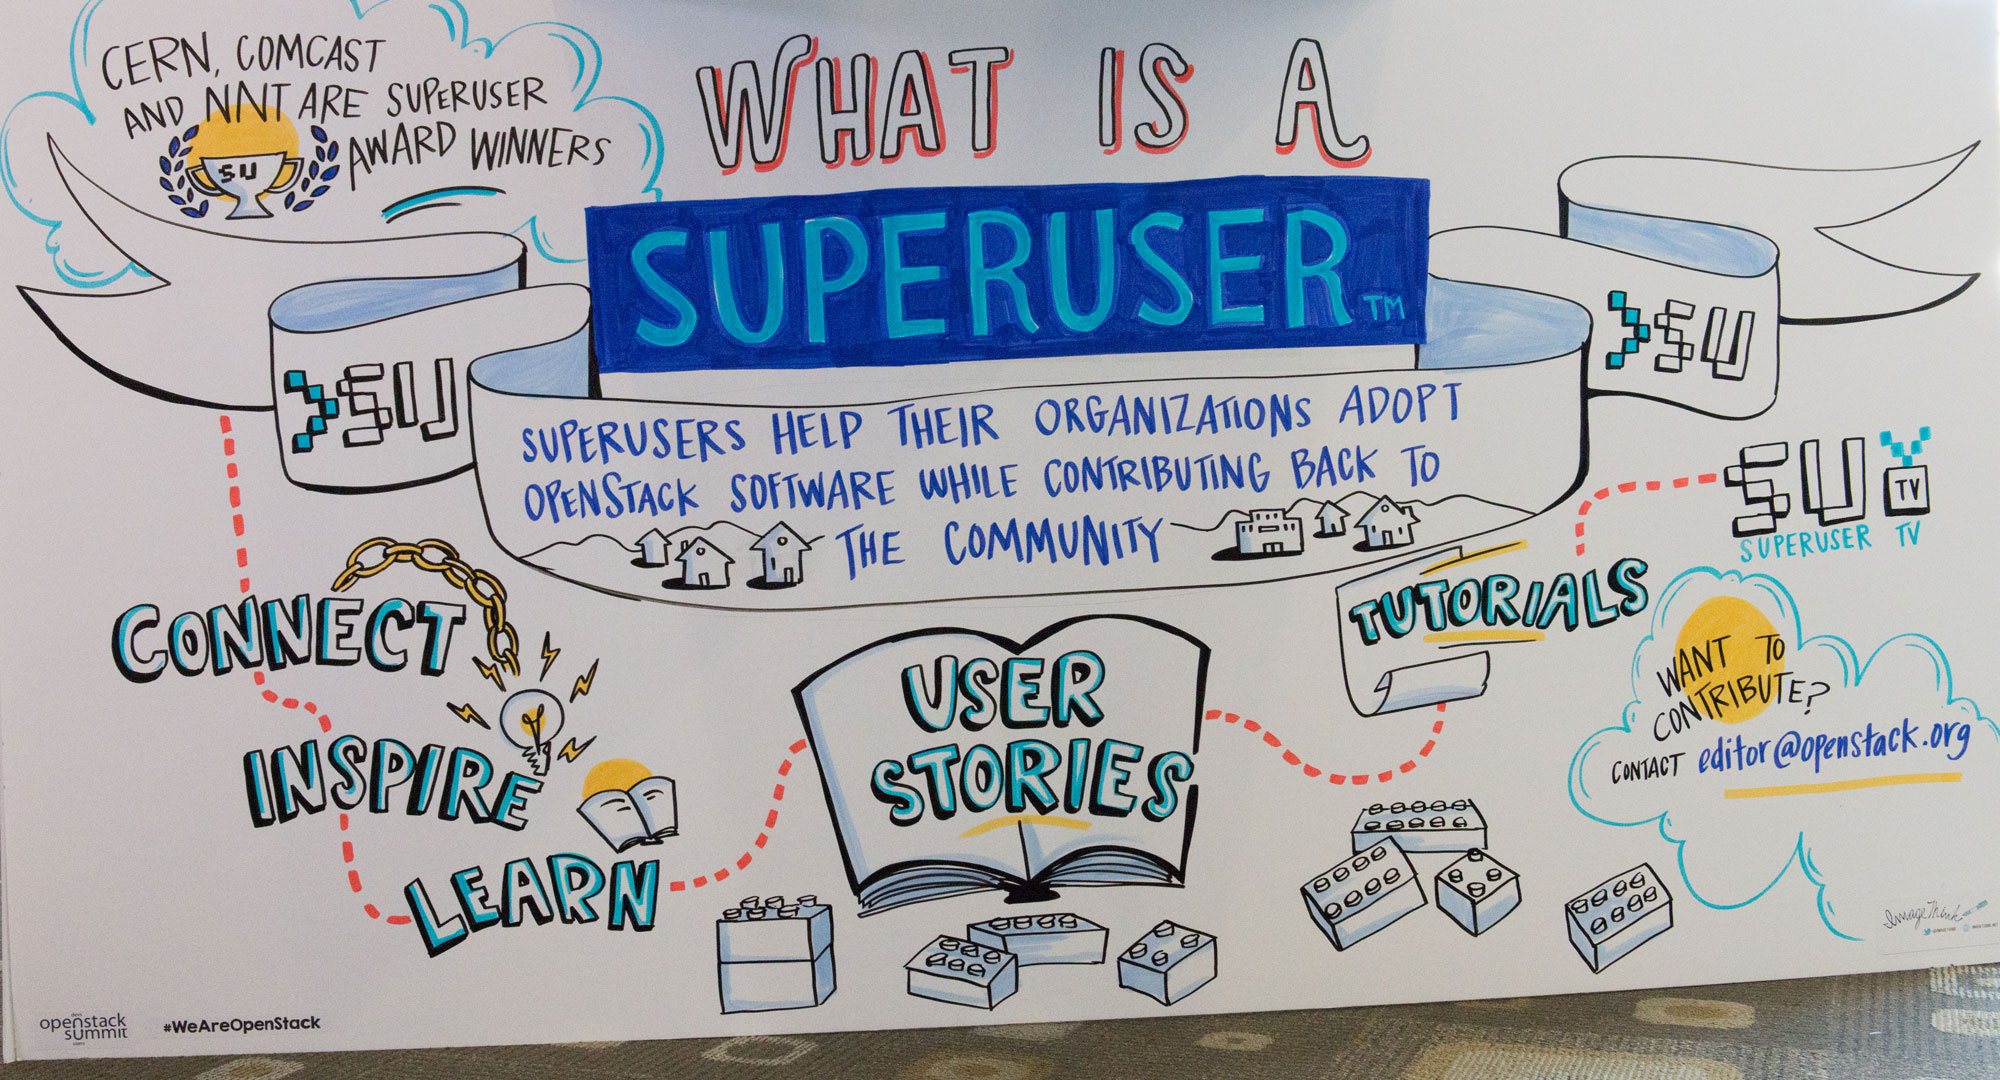 CERN, COMCAST
AND NNT ARE SUPERUSER
AWARD WINNERS
SU
WHAT IS A
SUPERUSER TM
>SU
>SU
SUPERUSERS HELP THEIR ORGANIZATIONS ADOPT
OPENSTACK SOFTWARE WHILE CONTRIBUTING BACK TO
THE COMMUNITY
SU TV
SUPERUSER TV
CONNECT
INSPIRE
LEARN
USER
STORIES
TUTORIALS
WANT TO
CONTRIBUTE?
CONTACT editor@openstack.org
ImageThink
openstack
summit
#WeAreOpenStack